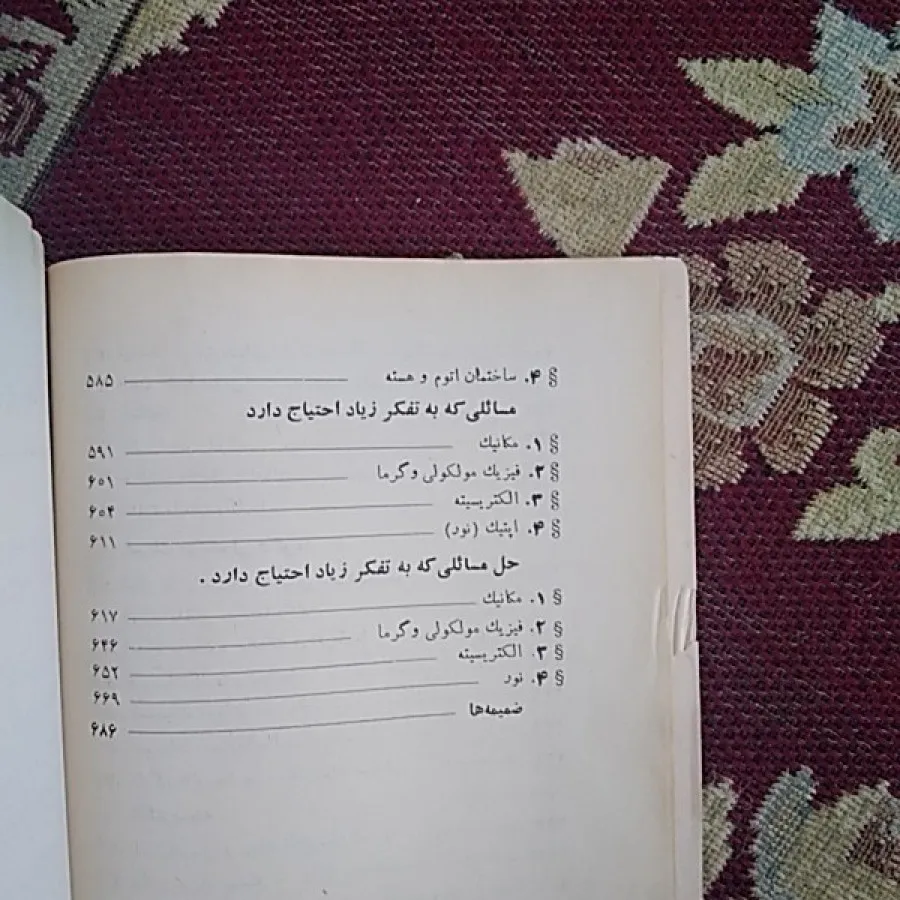 § ۴. ساختمان اتوم و هسته ۵۸۵
مسائلی که به تفکر زیاد احتیاج دارد
§ ۱. مکانیك ۵۹۱
§ ۲. فیزیك مولکولی و گرما ۶۰۱
§ ۳. الکتریسیته ۶۰۴
§ ۴. اپتیك (نور) ۶۱۱
حل مسائلی که به تفکر زیاد احتیاج دارد .
§ ۱. مکانیك ۶۱۷
§ ۲. فیزیك مولکولی و گرما ۶۴۶
§ ۳. الکتریسیته ۶۵۲
§ ۴. نور ۶۶۹
ضمیمه‌ها ۶۸۶